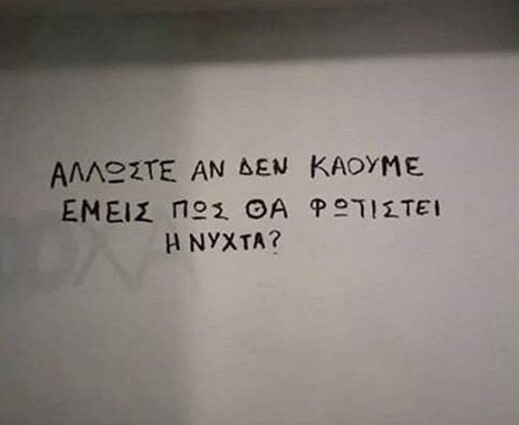 ΑΛΛΩΣΤΕ ΑΝ ΔΕΝ ΚΑΟΥΜΕ
ΕΜΕΙΣ ΠΩΣ ΘΑ ΦΩΤΙΣΤΕΙ
Η ΝΥΧΤΑ?